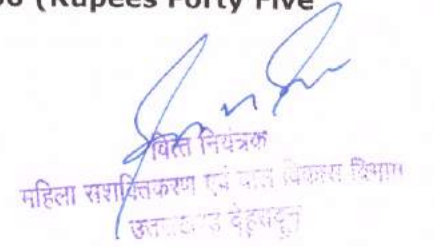 (Rupees Forty Five
वित्त नियंत्रक
महिला सशक्तिकरण एवं बाल विकास विभाग
उत्तराखण्ड देहरादून